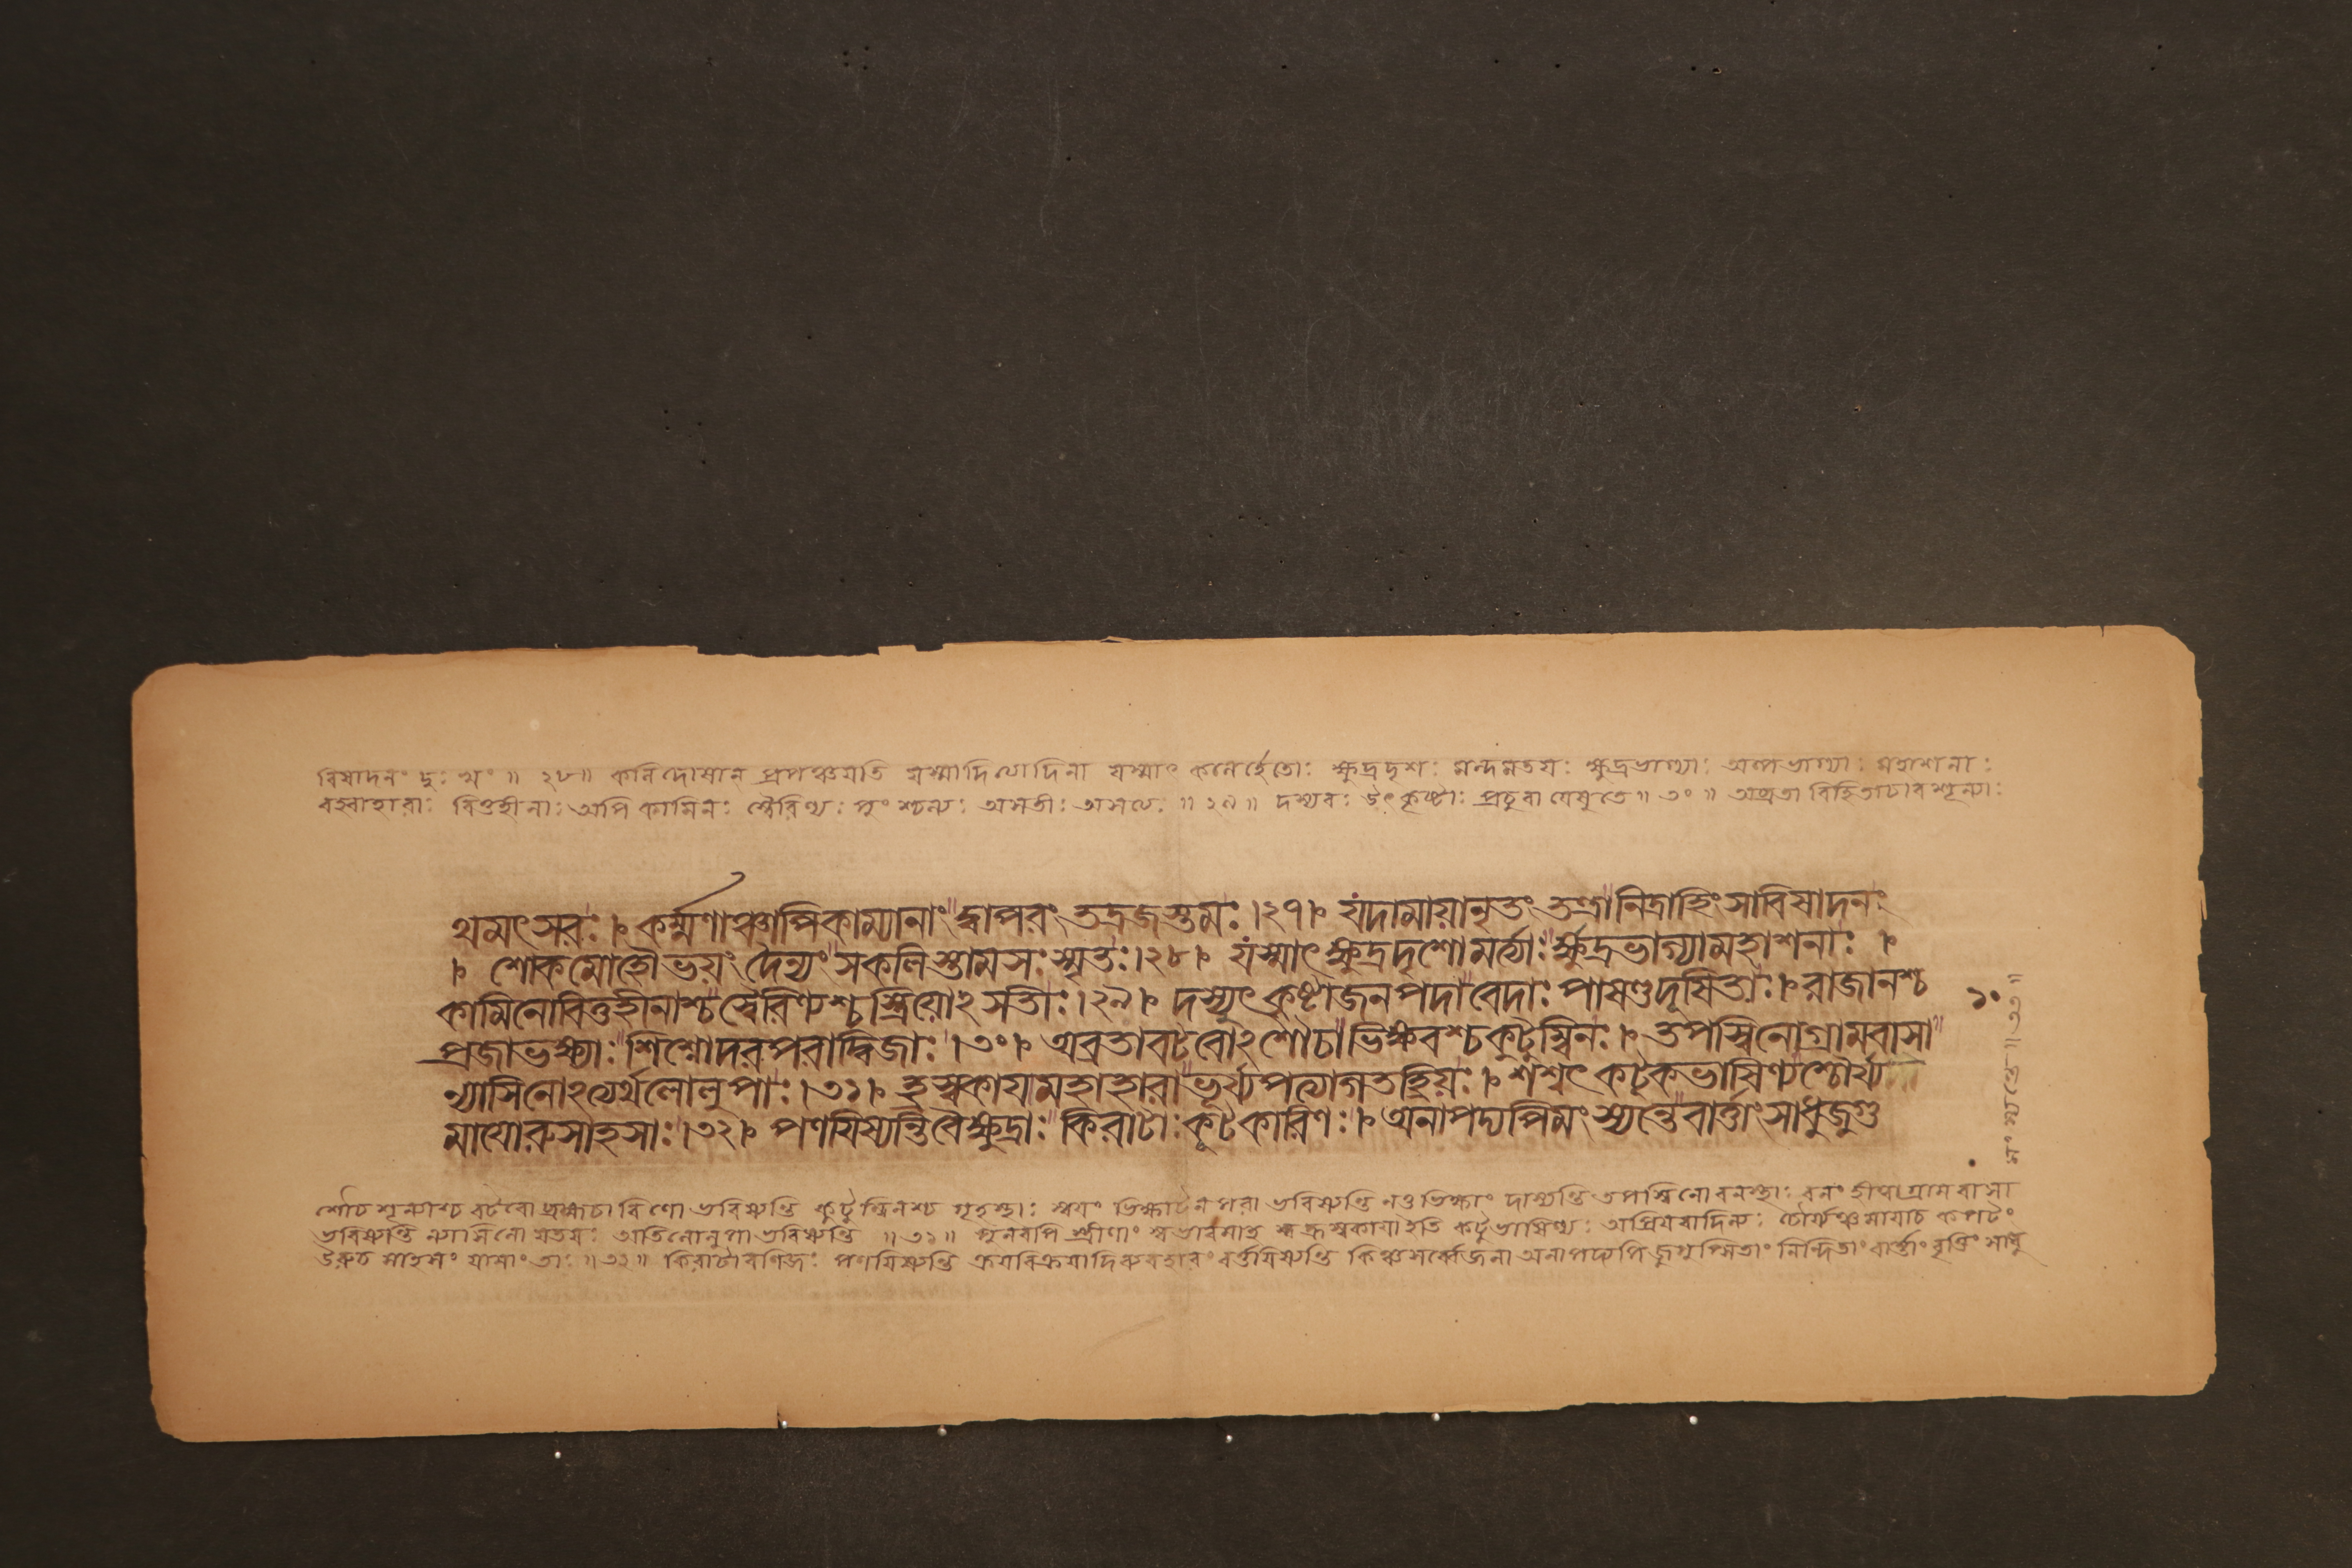 বিষাদনং দুঃখং ॥ ২৮॥ কলিদোষান প্রপঞ্চয়তি যস্মাদিত্যাদিনা যস্মাৎ কলের্হেতোঃ ক্ষুদ্রদৃশঃ মন্দমতয়ঃ ক্ষুদ্রভাগ্যাঃ অল্পভাগ্যাঃ মহাশনাঃ
বহ্বাহারাঃ বিত্তহীনাঃ অপি কামিনঃ স্বৈরিণ্যঃ পুংশ্চল্যঃ অসতীঃ অসত্যঃ ॥ ২৯॥ দস্যবঃ উৎকৃষ্টাঃ প্রচুরা যেষু তে ॥ ৩০ ॥ অব্রতা বিহিতাচারশূন্যাঃ
থমৎসরঃ। কর্ম্মণাঞ্চাপিকাম্যানাং দ্বাপরং তদ্রজস্তমঃ।২৭। যদামায়ানৃতং তন্দ্রানিদ্রাহিংসাবিষাদনং
। শোকমোহৌভয়ং দৈন্যং সকলিস্তামসঃস্মৃতঃ।২৮। যস্মাৎ ক্ষুদ্রদৃশোমর্ত্যাঃ ক্ষুদ্রভাগ্যামহাশনাঃ ।
কামিনোবিত্তহীনাশ্চস্বৈরিণ্যশ্চস্ত্রিয়োঽসতীঃ।২৯। দস্যুৎকৃষ্টাজনপদাবেদাঃ পাষণ্ডদূষিতাঃ। রাজানশ্চ
প্রজাভক্ষ্যাঃ শিশ্নোদরপরাদ্বিজাঃ ।৩০। অব্রতাবটবোঽশৌচাভিক্ষবশ্চকুটুম্বিনঃ। তপস্বিনোগ্রামবাসা
ন্যাসিনোঽত্যর্থলোলুপাঃ।৩১। হ্রস্বকায়মহাহারাভূর্য্যপত্যাগতহ্রিয়ঃ। শশ্বৎ কটুকভাষিণ্যশ্চৌর্য্য
মায়োরুসাহসাঃ।৩২। পণয়িষ্যন্তিবৈক্ষুদ্রাঃ কিরাটাঃ কূটকারিণঃ। অনাপদ্যপিমংস্যন্তেবার্ত্তাং সাধুজুগু
১০
মংস্যন্তে॥৩৩॥
শৌচশূন্যাশ্চ বটবো ব্রহ্মচারিণো ভবিষ্যন্তি কুটুম্বিনশ্চ গৃহস্থাঃ স্বয়ং ভিক্ষাটনপরা ভবিষ্যন্তি নতু ভিক্ষাং দাস্যন্তি তপস্বিনো বনস্থাঃ বনং হীত্বা গ্রামবাসা
ভবিষ্যন্তি ন্যাসিনো যতয়ঃ অতিলোলুপা ভবিষ্যন্তি ॥৩১॥ পুনরপি স্ত্রীণাং স্বভাবমাহ হ্রস্বকায়া ইতি কটুভাষিণ্যঃ অপ্রিয়বাদিন্যঃ চৌর্য্যঞ্চ মায়াচ কপটং
উরুচ সাহসং যাসাং তাঃ ॥৩২॥ কিরাটা বণিজঃ পণয়িষ্যন্তি ক্রয়বিক্রয়াদিব্যবহারং বর্ত্তয়িষ্যন্তি কিঞ্চ সর্ব্বে জনা অনাপদ্যপি জুগুপ্সিতাং নিন্দিতাং বার্ত্তাং বৃত্তিং সাধু